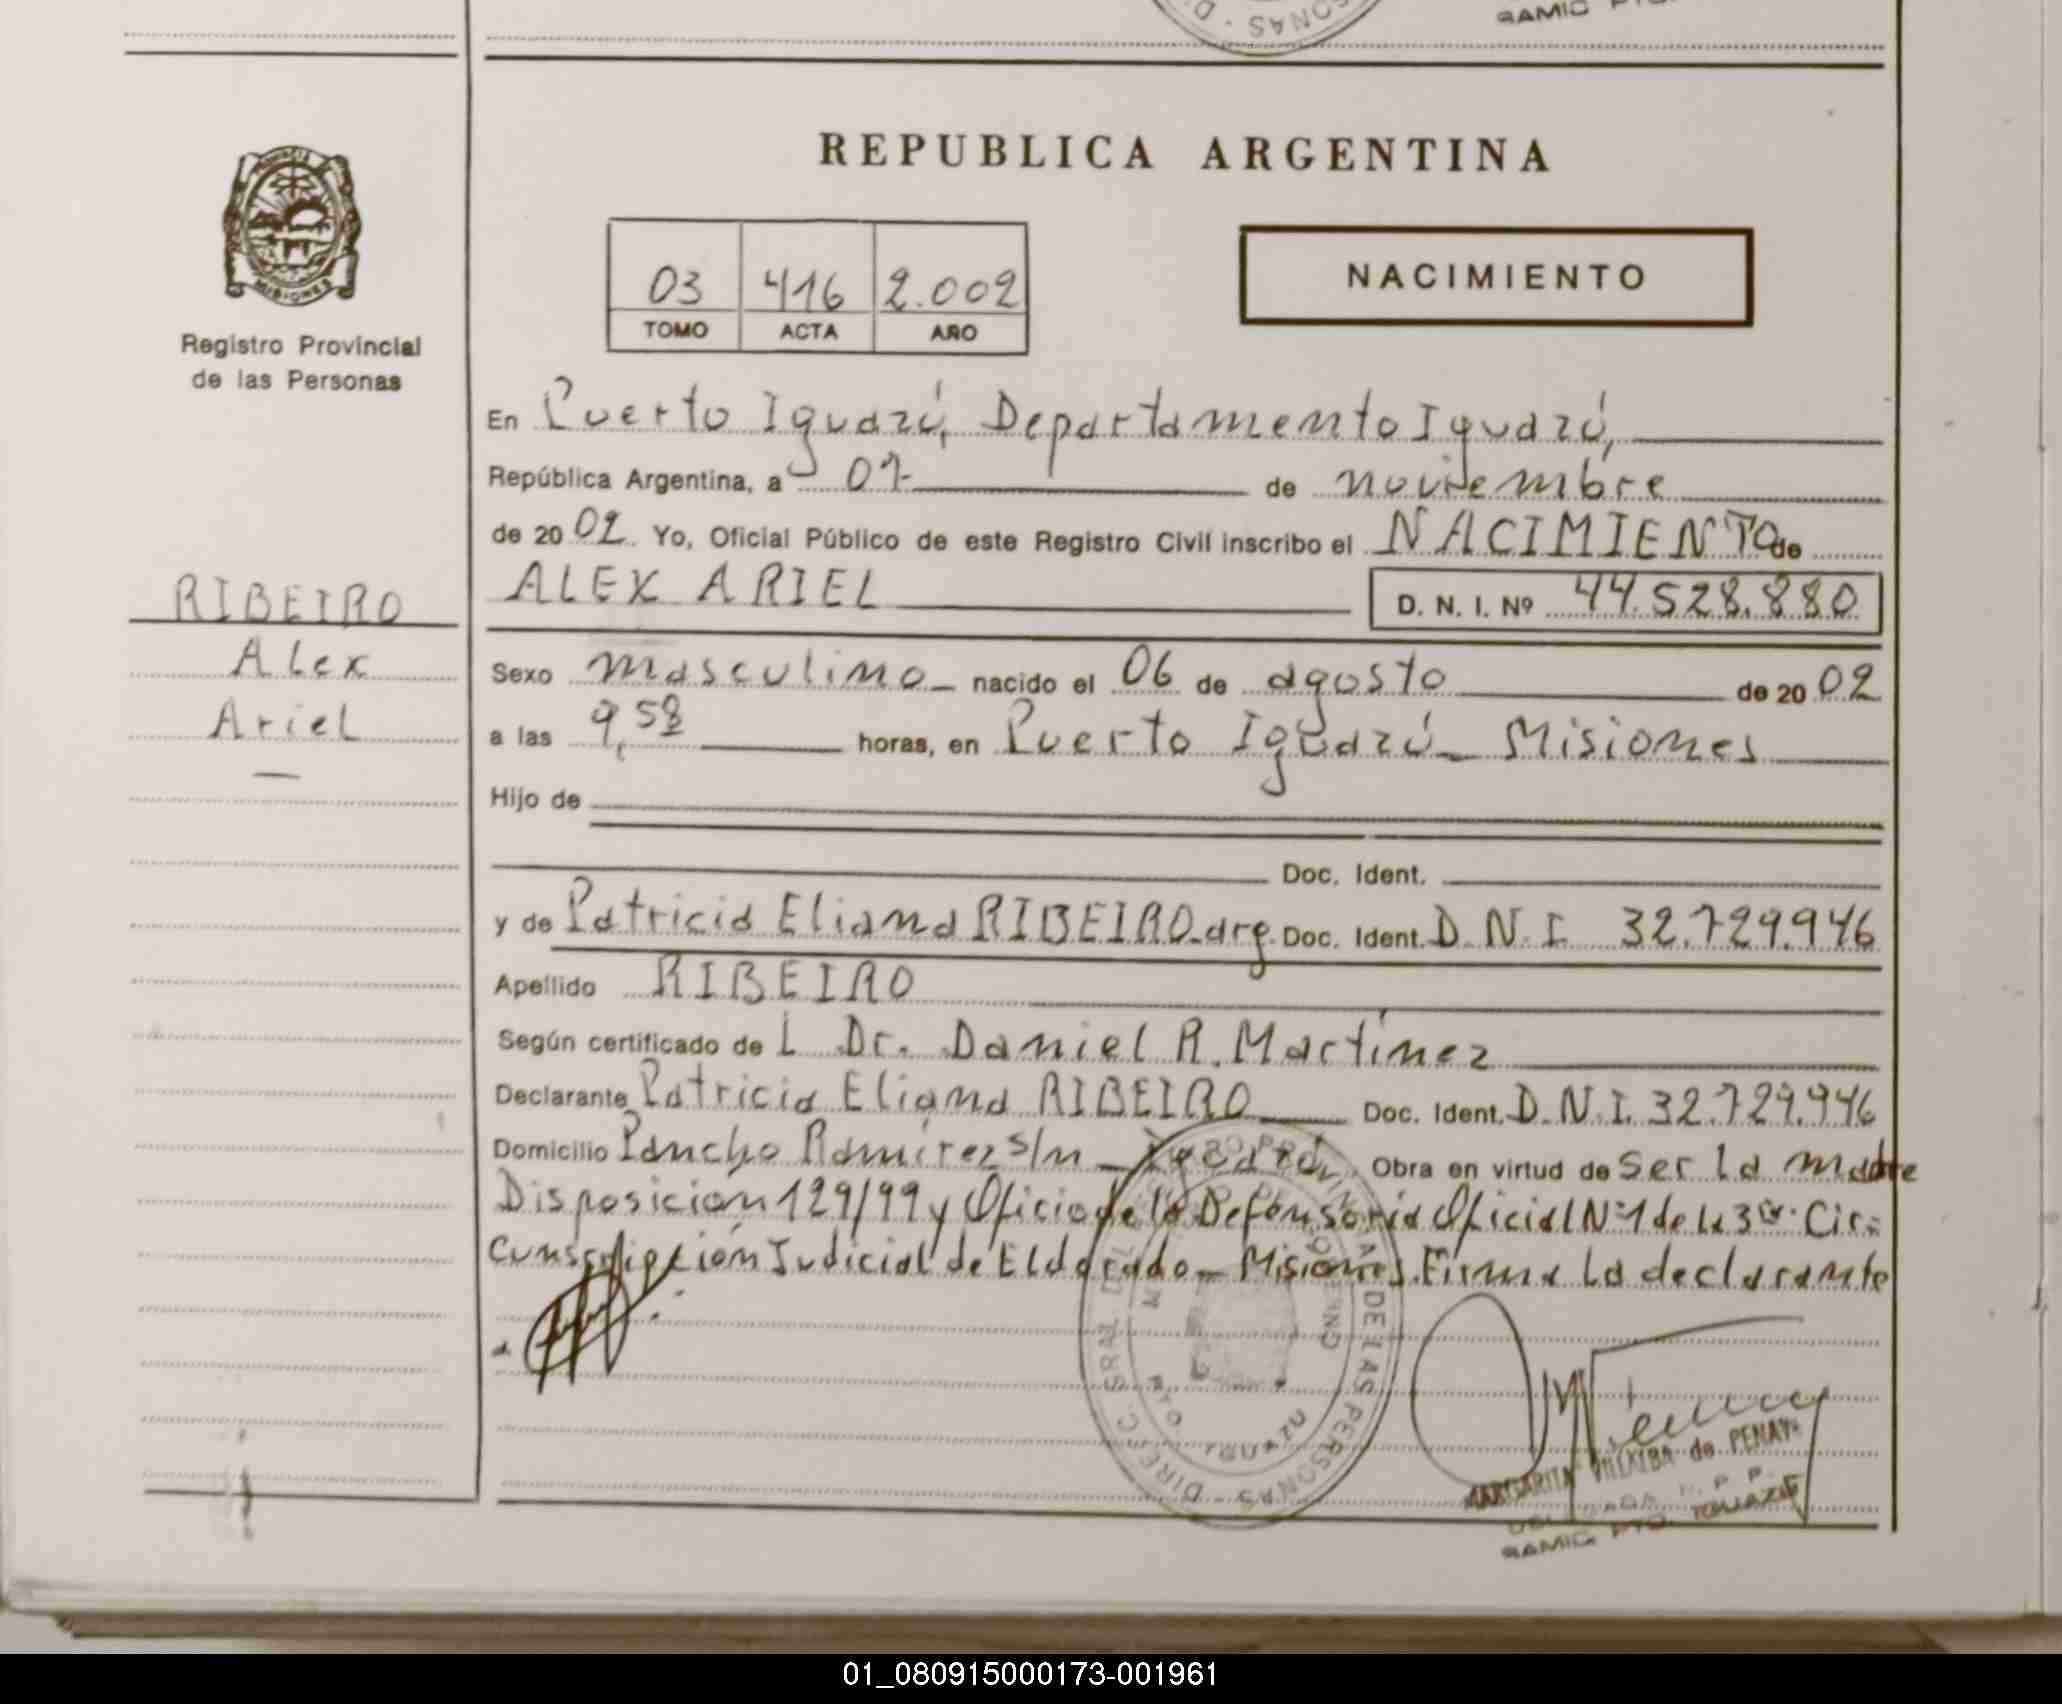 SONAS
SAMIC PTO.
REPUBLICA ARGENTINA
MISIONES
Registro Provincial
de las Personas
03 416 2.002
TOMO ACTA AÑO
NACIMIENTO
En Puerto Iguazú, Departamento Iguazú,
República Argentina, a 07 de noviembre
de 20 02 Yo, Oficial Público de este Registro Civil inscribo el NACIMIENTO de
RIBEIRO
Alex
Ariel
ALEX ARIEL D. N. I. Nº 44.528.880
Sexo masculino nacido el 06 de agosto de 20 02
a las 9,58 horas, en Puerto Iguazú - Misiones
Hijo de
Doc. Ident.
y de Patricia Eliana RIBEIRO-arg. Doc. Ident. D.N.I. 32.729.946
Apellido RIBEIRO
Según certificado de L Dr. Daniel R. Martínez
Declarante Patricia Eliana RIBEIRO Doc. Ident. D.N.I. 32.729.946
Domicilio Pancho Ramírez s/n - Iguazú, Obra en virtud de ser la madre
Disposición 129/99 y Oficio de la Defensoría Oficial Nº 1 de la 3ra. Cir=
cunscripción Judicial de Eldorado - Misiones. Firma la declarante
DIREC. GRAL. DEL REGISTRO PROVINCIAL DE LAS PERSONAS
PTO. IGUAZU
MARGARITA VILLALBA de PENAY
SAMIC PTO. IGUAZU
01_080915000173-001961